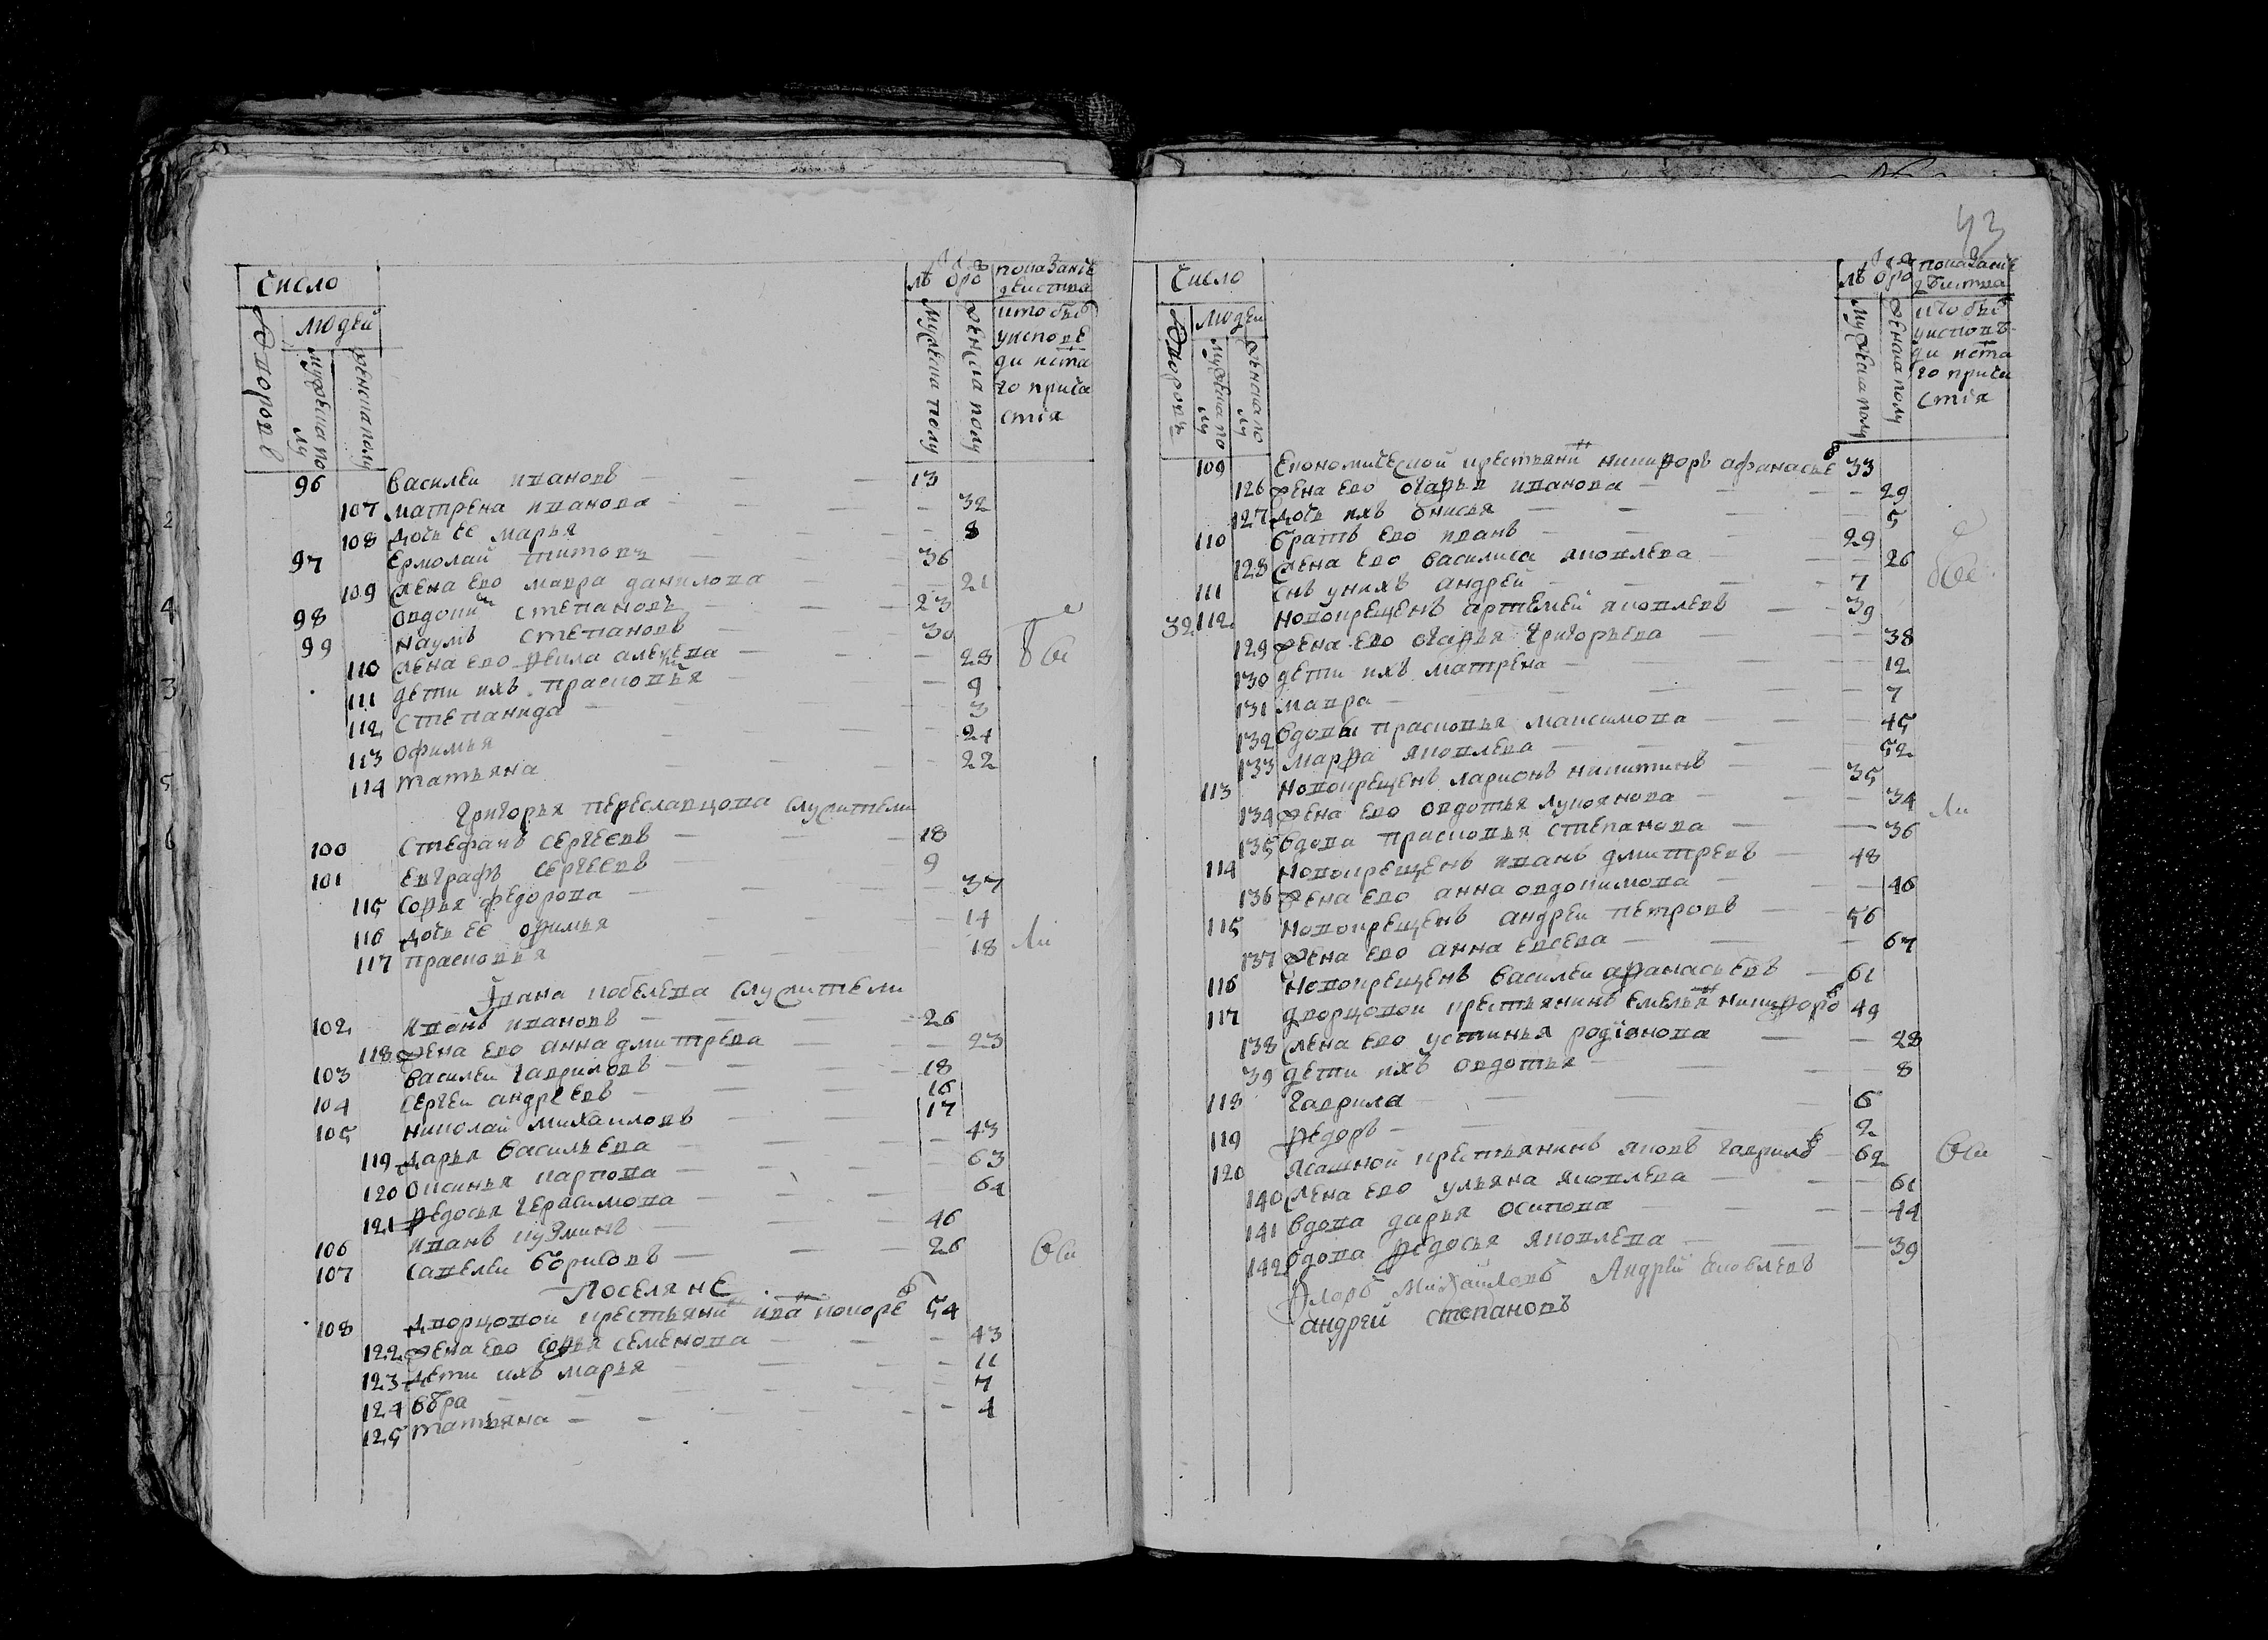 Число
Людей
Дворовъ
мужеска полу
женска полу
лѣта
мужеска полу
женска полу
показание
действа
кто былъ
у испове
ди и ста
го прича
стія
96 Василеи Ивановъ 13
107 Матрена Иванова 32
108 дочь ее Марья 8
97 Ермолаи Титовъ 36
109 жена ево Мавра Данилова 21
98 Овдоким Степановъ 23
99 Наумъ Степановъ 30
110 жена ево Фекла Алексева 28
111 дети ихъ Прасковья 9
112 Степанида 3
113 Офимья 24
114 Татьяна 22
Григорья Переславцова служители
100 Стефанъ Сергеевъ 18
101 Евграфъ Сергеевъ 9
115 Софья Федорова 37
116 дочь ее Офимья 14
117 Прасковья 18
Ивана Кобелева служители
102 Иванъ Ивановъ 26
118 жена ево Анна Дмитрева 23
103 Василеи Гавриловъ 18
104 Сергеи Андреевъ 16
105 Николаи Михаиловъ 17
119 Дарья Васильева 43
120 Оксинья Карпова 63
121 Федосья Герасимова 64
106 Иванъ Кузминъ 46
107 Савелеи Борисовъ 26
Поселяне
108 Дворцовои крестьянинъ Ива Кокоре 54
122 жена ево Софья Семенова 43
123 дети ихъ Марья 11
124 Вера 7
125 Татьяна 4
43
Число
Людеи
Дворовъ
мужеска полу
женска полу
лѣта
мужеска полу
женска полу
показание
действа
кто былъ
у исповѣ
ди и ста
го прича
стія
109 Економическои крестьянинъ Никифоръ Афанасье 33
126 жена ево Дарья Иванова 29
127 дочь ихъ Онисья 5
110 братъ ево Иванъ 29
128 жена ево Василиса Яковлева 26
111 снъ у нихъ Андреи 7
32 112 Новокрещенъ Артемеи Яковлевъ 39
129 жена ево Дарья Григорьева 38
130 дети ихъ Матрена 12
131 Мавра 7
132 вдовы Прасковья Максимова 45
133 Марфа Яковлева 52
113 Новокрещенъ Ларионъ Никитинъ 35
134 жена ево Овдотья Лукоянова 34
135 вдова Прасковья Степанова 36
114 Новокрещенъ Иванъ Дмитревъ 48
136 жена ево Анна Овдокимова 46
115 Новокрещенъ Андреи Петровъ 56
137 жена ево Анна Евсева 67
116 Новокрещенъ Василеи Афанасьевъ 61
117 Дворцовои крестьянинъ Емелья Никифоро 49
138 жена ево Устинья Родіонова 28
39 дети ихъ Овдотья 8
118 Гаврила 6
119 Федоръ 2
120 Ясашнои крестьянинъ Яковъ Гаврило 62
140 жена ево Ульяна Яковлева 61
141 вдова Дарья Осипова 44
142 вдова Федосья Яковлева 39
Флоръ Михайловъ Андрей Яковлевъ
Андрей Степановъ